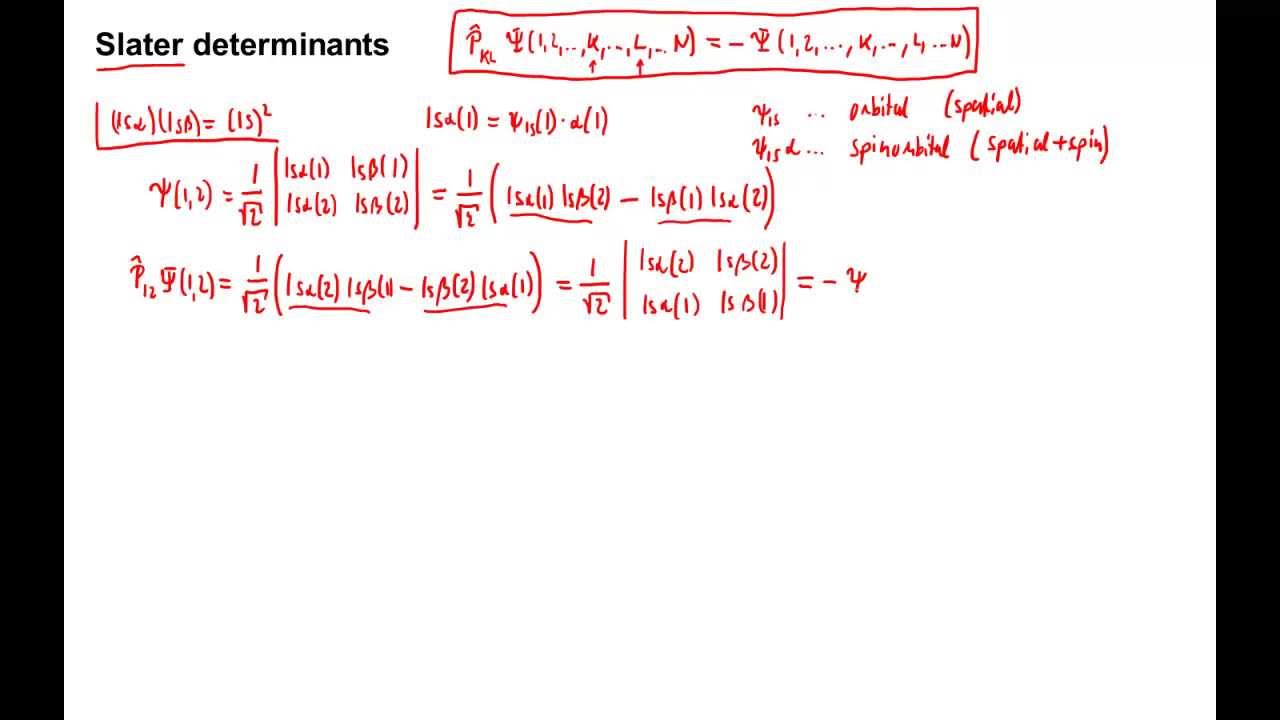 Slater determinants
P̂_KL Ψ(1,2,...,K,...,L,...N) = - Ψ(1,2,...,K,...,L,...N)
(1sα)(1sβ) = (1s)²
1sα(1) = ψ_1s(1)·α(1)
ψ_1s ... orbital (spatial)
ψ_1s α ... spinorbital (spatial+spin)
Ψ(1,2) = 1/√2 | 1sα(1) 1sβ(1) ; 1sα(2) 1sβ(2) | = 1/√2 (1sα(1) 1sβ(2) - 1sβ(1) 1sα(2))
P̂_12 Ψ(1,2) = 1/√2 (1sα(2) 1sβ(1) - 1sβ(2) 1sα(1)) = 1/√2 | 1sα(2) 1sβ(2) ; 1sα(1) 1sβ(1) | = - Ψ